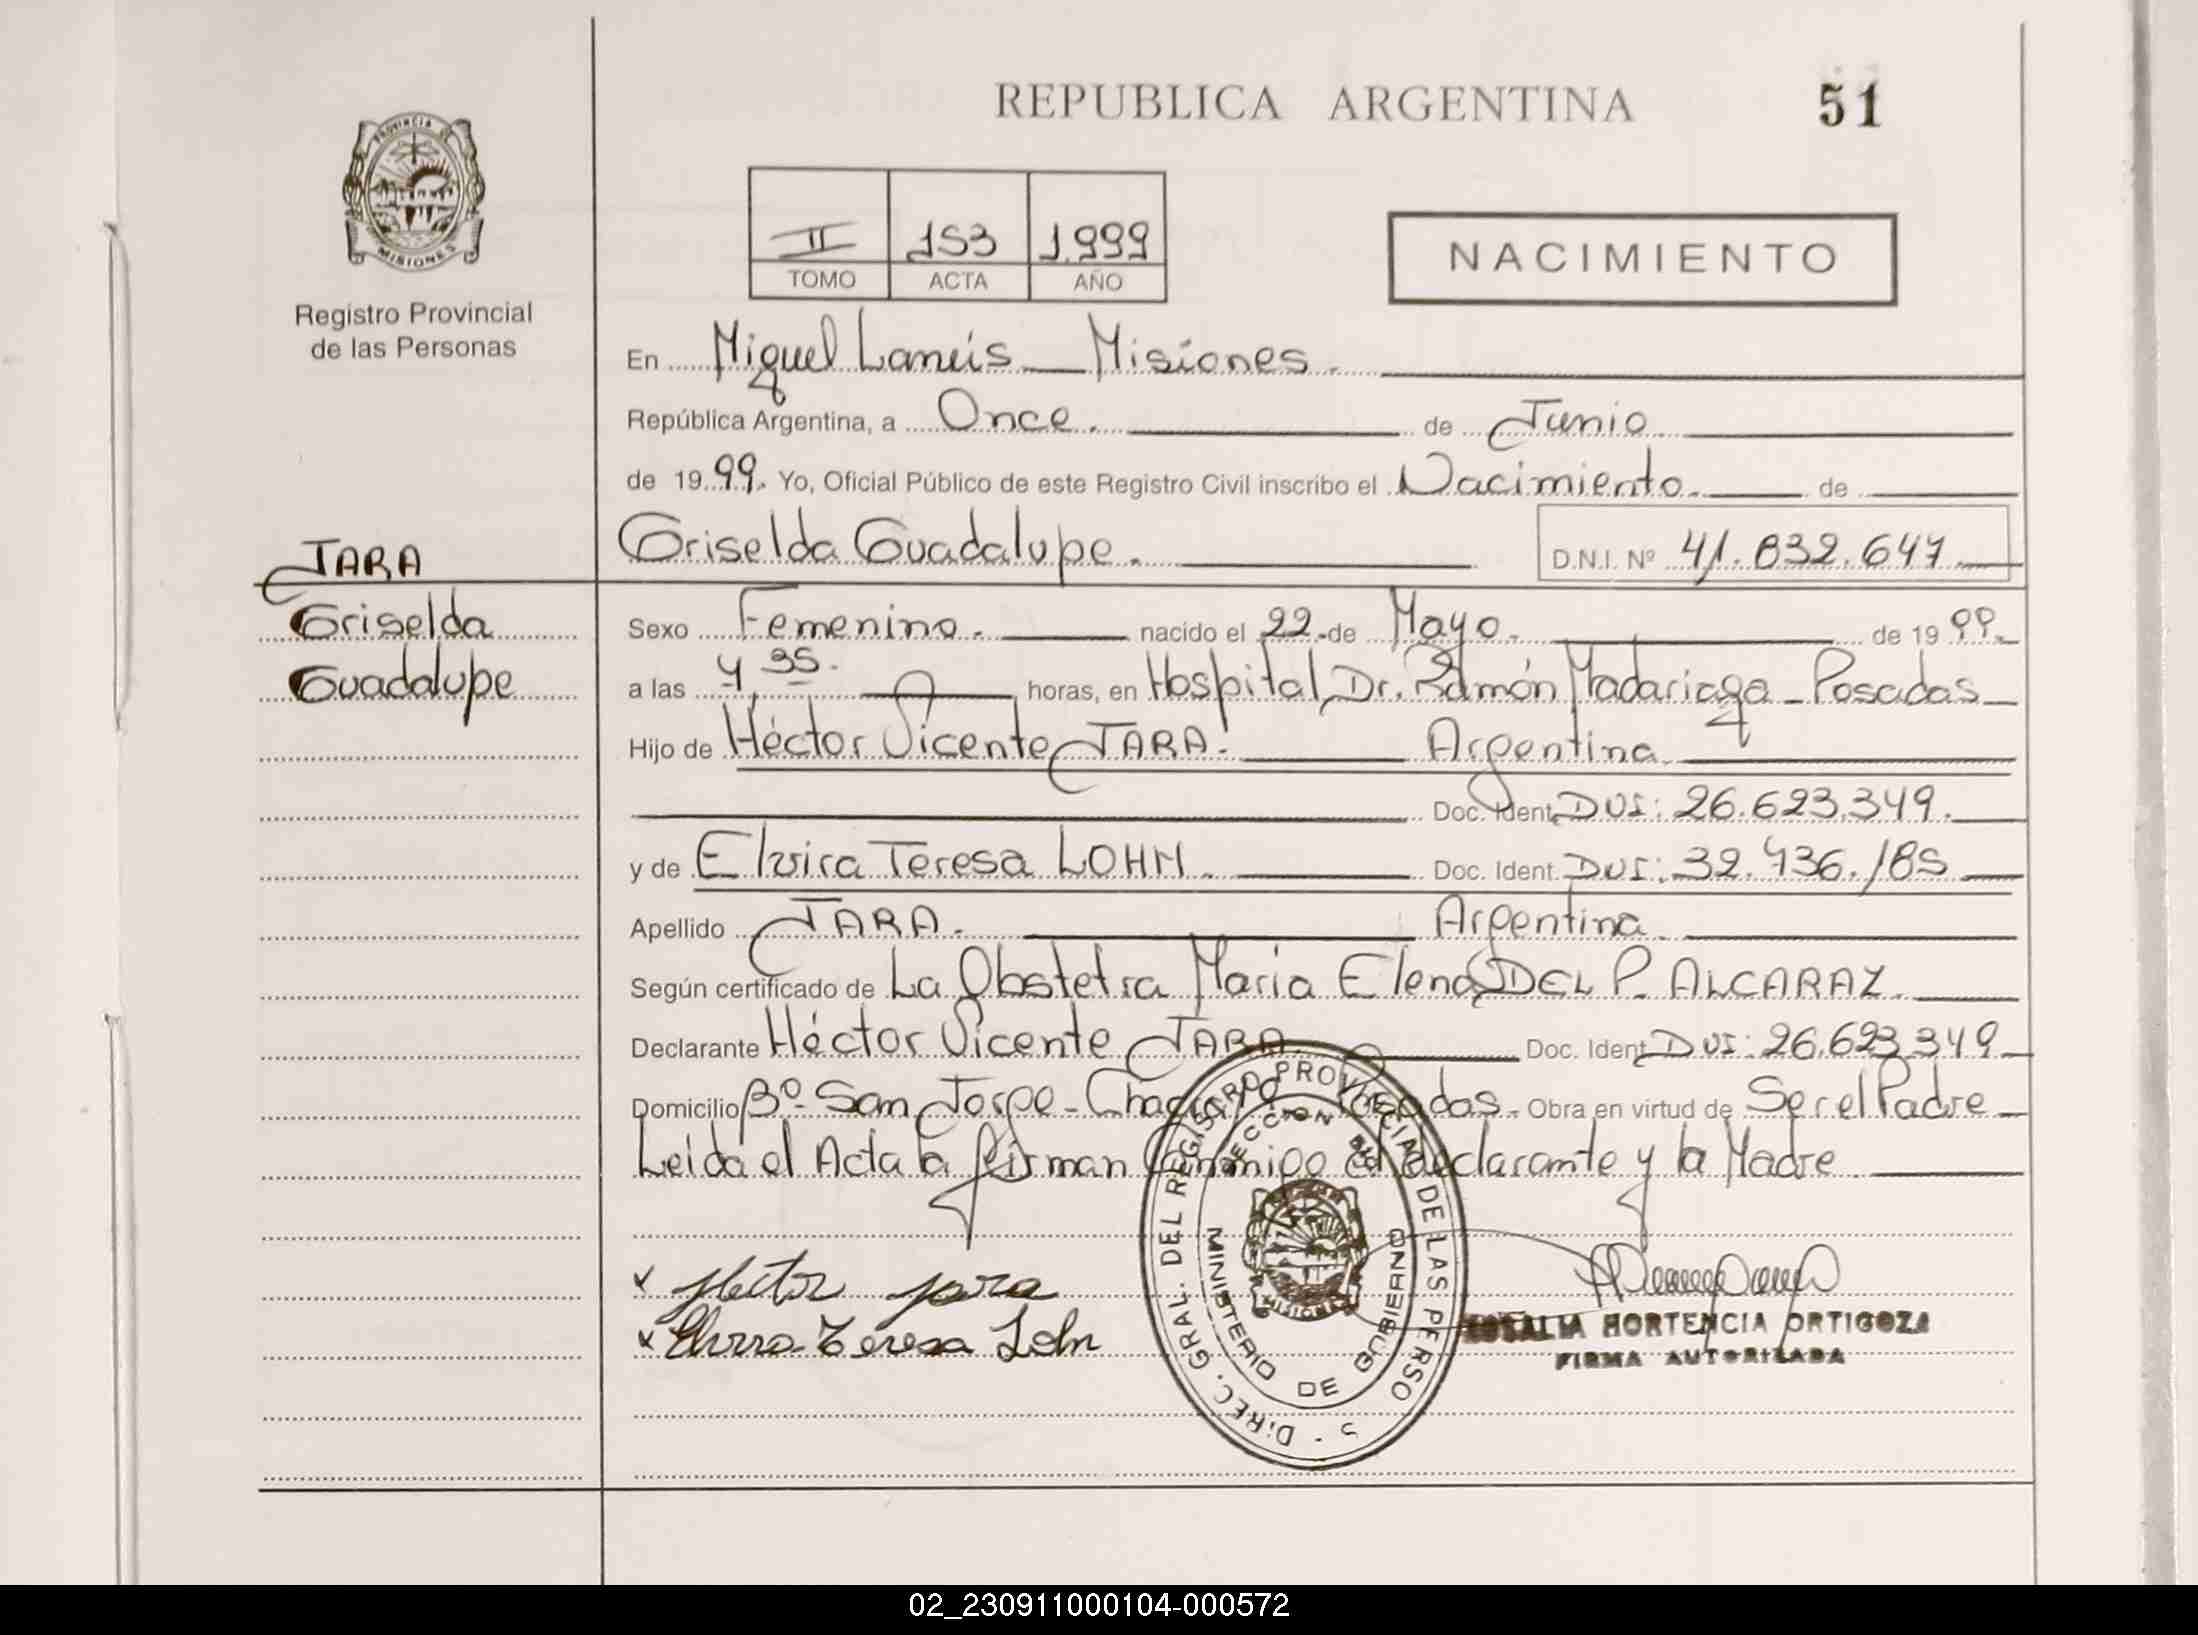 REPUBLICA ARGENTINA 51
PROVINCIA DE
MISIONES
Registro Provincial
de las Personas
II 153 1.999
TOMO ACTA AÑO
NACIMIENTO
En Miguel Lanús - Misiones.
República Argentina, a Once. de Junio
de 19 99. Yo, Oficial Público de este Registro Civil inscribo el Nacimiento. de
Griselda Guadalupe. D.N.I. Nº 41.832.647
JARA
Griselda
Guadalupe
Sexo Femenino. nacido el 22 de Mayo. de 19 99.
a las 4,35. horas, en Hospital Dr. Ramón Madariaga - Posadas
Hijo de Héctor Vicente JARA. Argentina
Doc. Ident. DUI: 26.623.349.
y de Elvira Teresa LOHN. Doc. Ident. DUI: 32.436.185
Apellido JARA. Argentina
Según certificado de La Obstetra Maria Elena DEL P. ALCARAZ.
Declarante Héctor Vicente JARA Doc. Ident. DUI: 26.623.349
Domicilio Bº San Jorge - Posadas - Obra en virtud de Ser el Padre
Leida el Acta la firman Conmigo el declarante y la Madre
x Hector jara
x Elvira Teresa Lohn
DIREC. GRAL. DEL REGISTRO PROVINCIAL DE LAS PERSO S
MINISTERIO DE GOBIERNO
MISIONES
ROSALIA HORTENCIA ORTIGOZA
FIRMA AUTORIZADA
02_230911000104-000572